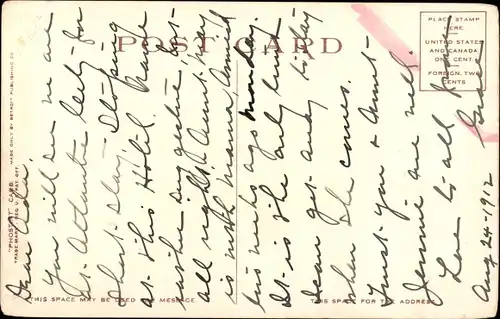 POST CARD
PLACE STAMP
HERE
UNITED STATES
AND CANADA
ONE CENT
FOREIGN, TWO
CENTS
"PHOSTINT" CARD
TRADE MARK REG. U.S. PAT. OFF.
MADE ONLY BY DETROIT PUBLISHING CO.
THIS SPACE MAY BE USED FOR MESSAGE
THIS SPACE FOR THE ADDRESS
Dear Ada,
You will see we are
at Atlantic City for
short stay - Stopping
at this Hotel. Mamma
has been getting
all right. Aunt May
is with mamma Arrived
two weeks ago Monday.
It is the only time I
can get away to-day
when she comes.
Trust you & Aunt
Jennie are well.
Love to all from
Grace
Aug 24-1912